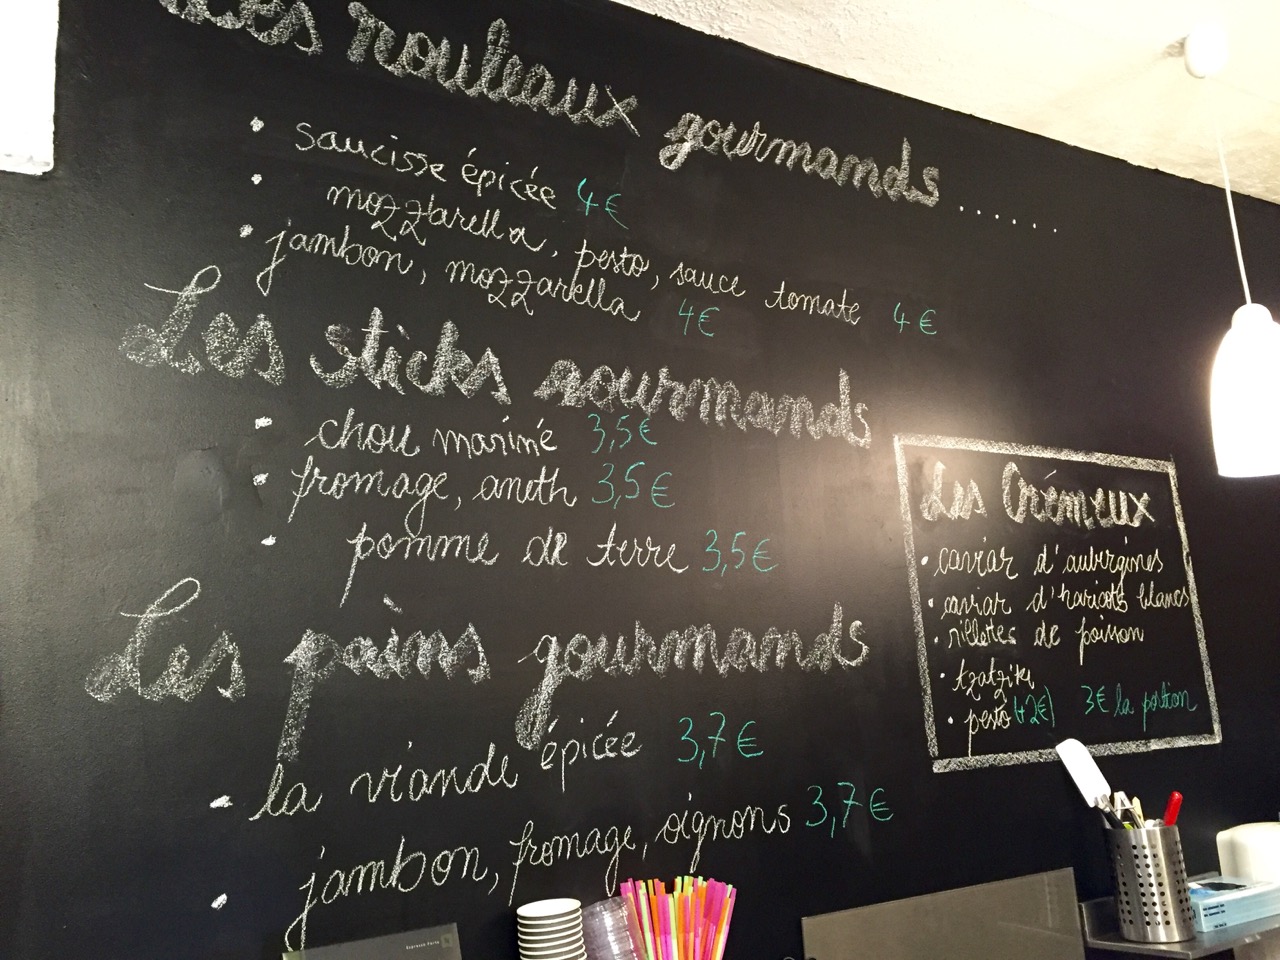 Les rouleaux gourmands......
• saucisse épicée 4€
• mozzarella, pesto, sauce tomate 4€
• jambon, mozzarella 4€
Les sticks gourmands
• chou mariné 3,5€
• fromage, aneth 3,5€
• pomme de terre 3,5€
Les pains gourmands
• la viande épicée 3,7€
• jambon, fromage, oignons 3,7€
Les Crémeux
• caviar d'aubergines
• caviar d'haricots blancs
• rillettes de poisson
• tzatziki
• pesto (+2€) 3€ la portion